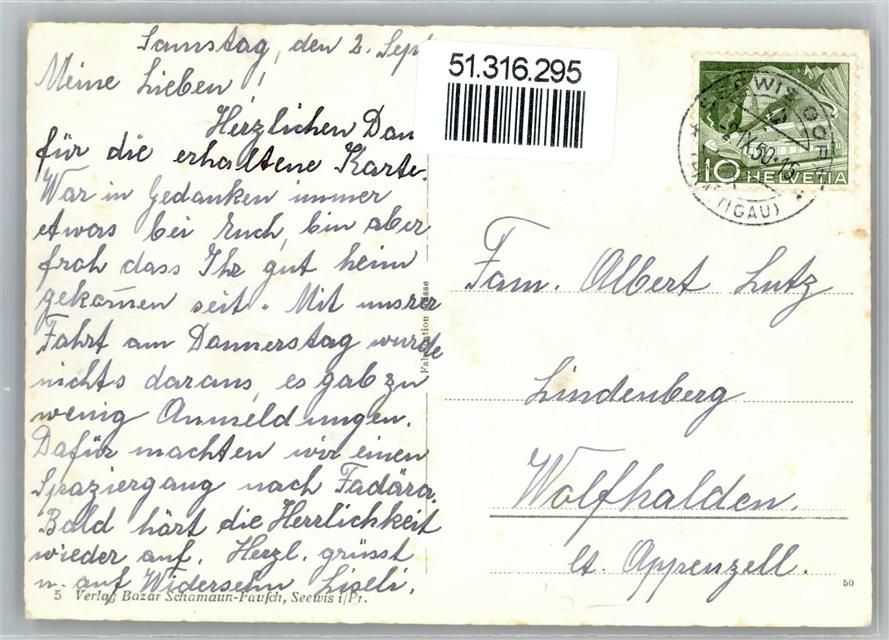 Samstag, den 2. Sept
Meine Lieben!
Herzlichen Dan
für die erhaltene Karte.
War in Gedanken immer
etwas bei Euch, bin aber
froh dass Ihr gut heim
gekom̄en seit. Mit unsrer
Fahrt am Donnerstag wurde
nichts daraus, es gab zu
wenig Anmeldungen.
Dafür machten wir einen
Spaziergang nach Fadära.
Bald hört die Herrlichkeit
wieder auf. Herzl. grüsst
u. auf Widersehn Liseli.
5 Verlag Bazar Schamaun-Fausch, Seewis i/Pr.
51.316.295
SEEWIS DORF
2.IX.50.15
(PRÄTTIGAU)
10 HELVETIA
Fam. Albert Lutz
Lindenberg
Wolfhalden.
Ct. Appenzell.
50